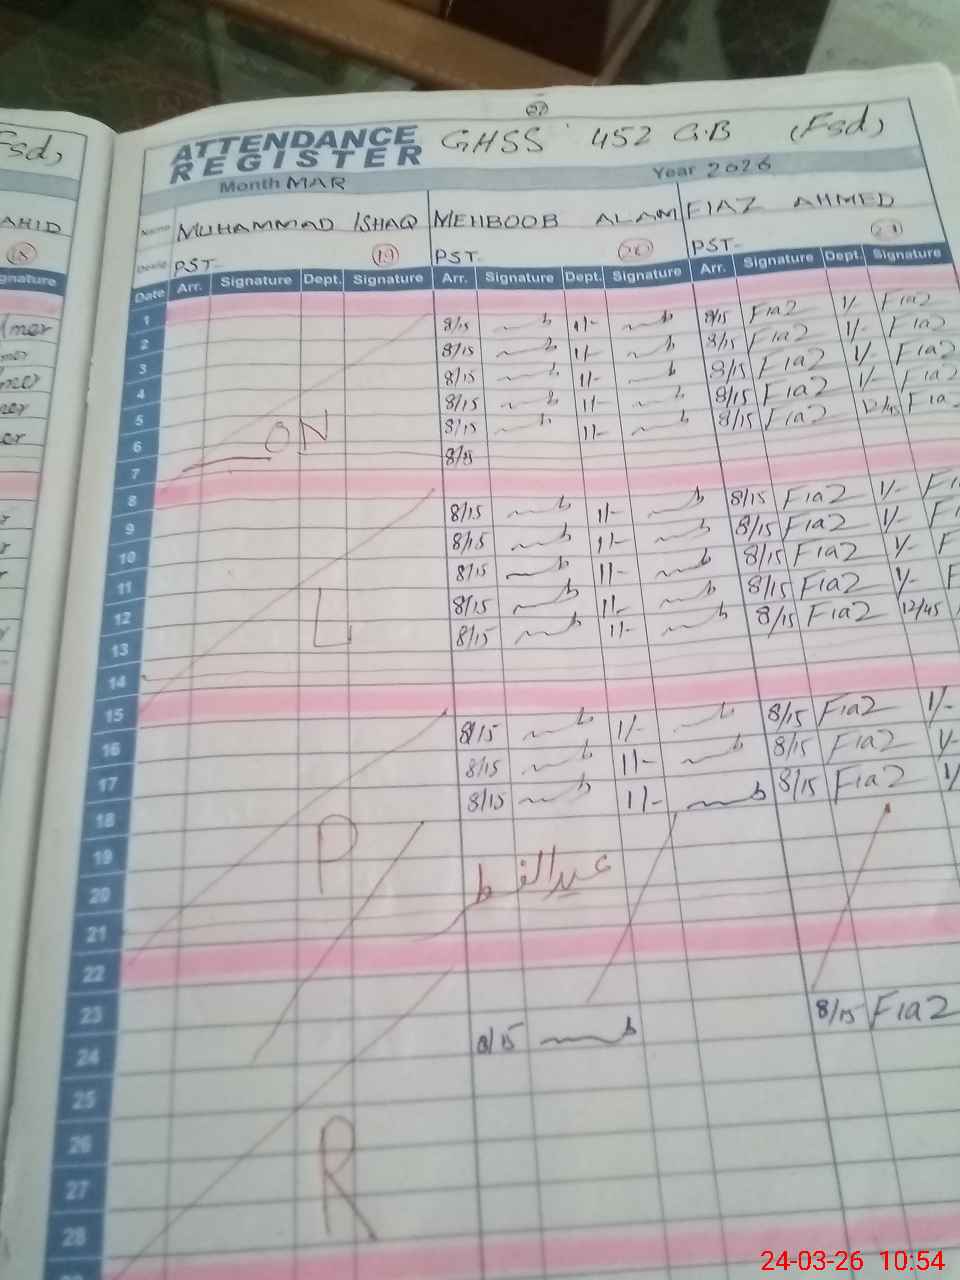 27
Fsd)
ATTENDANCE REGISTER GHSS 452 G.B (Fsd)
Month MAR Year 2026
AHID
Name MUHAMMAD ISHAQ MEHBOOB ALAM FIAZ AHMED
18 19 20 21
Desig PST PST PST
gnature Date Arr. Signature Dept. Signature Arr. Signature Dept. Signature Arr. Signature Dept. Signature
1
2 8/15 1/- 8/15 Fia2 1/- Fia2
3 8/15 1/- 8/15 Fia2 1/- Fia2
4 8/15 1/- 8/15 Fia2 1/- Fia2
5 8/15 1/- 8/15 Fia2 1/- Fia2
6 ON 8/15 1/- 8/15 Fia2 12/45 Fia2
7 8/8
8
9 8/15 1/- 8/15 Fia2 1/- Fi
10 8/15 1/- 8/15 Fia2 1/- F
11 8/15 1/- 8/15 Fia2 1/- F
12 L 8/15 1/- 8/15 Fia2 1/- F
13 8/15 1/- 8/15 Fia2 12/45
14
15
16 8/15 1/- 8/15 Fia2 1/-
17 8/15 1/- 8/15 Fia2 1/-
18 8/15 1/- 8/15 Fia2 1/
19 P
20 عید الفطر
21
22
23
24 8/15 8/15 Fia2
25
26
27 R
28
24-03-26 10:54